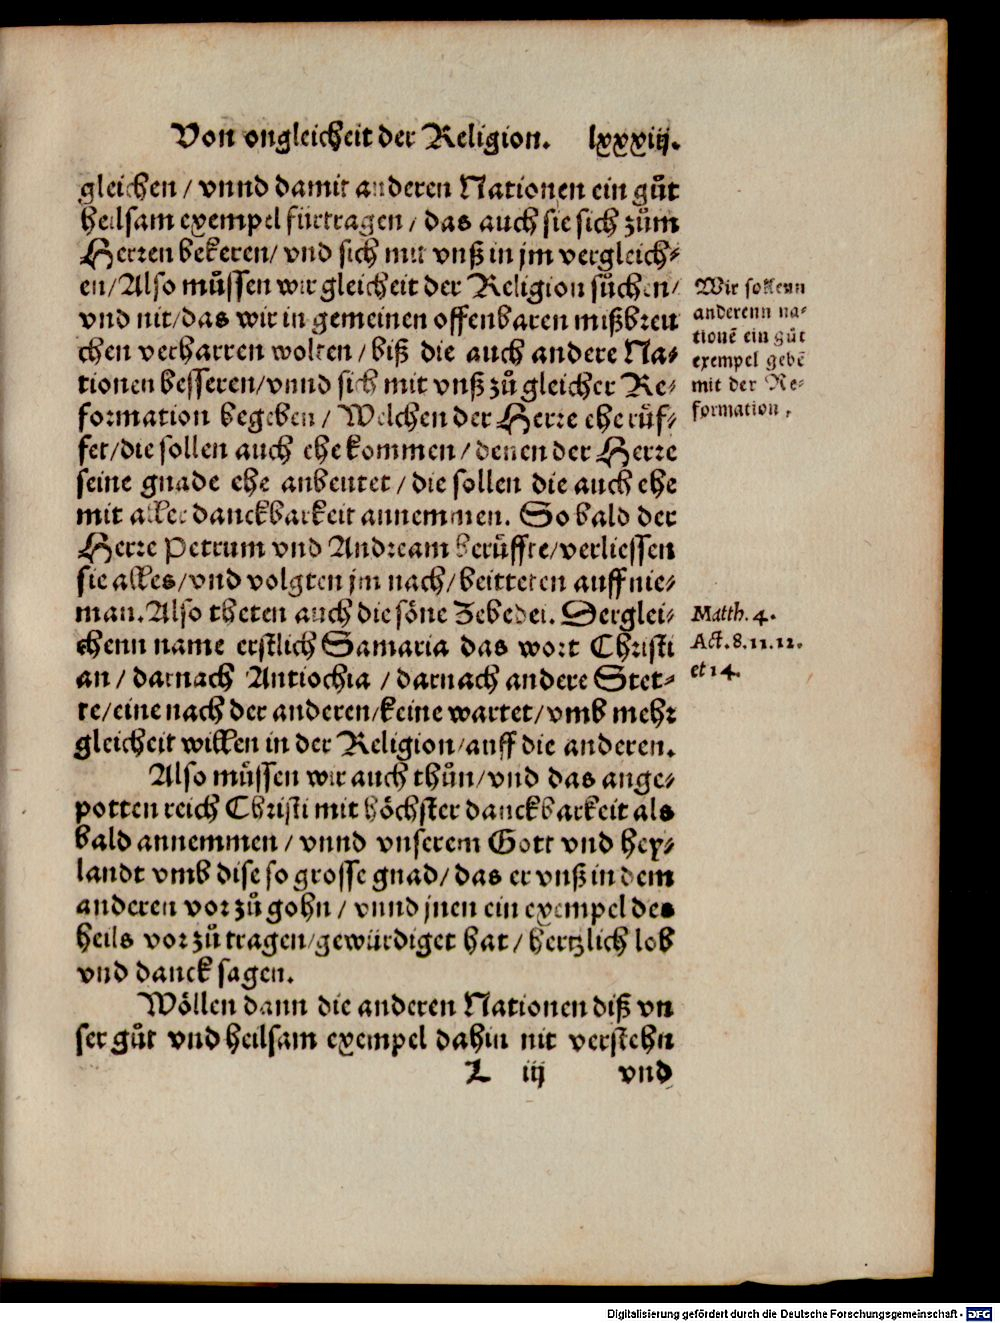 Von ongleicheit der Religion. lxxxiij.
gleichen / vnnd damit anderen Nationen ein gůt
heilsam exempel fürtragen / das auch sie sich zům
Herren bekeren / vnd sich mit vnß in jm vergleich-
en / Also můssen wir gleicheit der Religion sůchen /
vnd nit / das wir in gemeinen offenbaren mißbreu
chen verharren wolten / biß die auch andere Na-
tionen besseren / vnnd sich mit vnß zů gleicher Re-
formation begeben / Welchen der Herre ehe růf-
fet / die sollen auch ehe kommen / denen der Herre
seine gnade ehe anbeutet / die sollen die auch ehe
mit aller danckbarkeit annemmen. So bald der
Herre Petrum vnd Andream berůffte / verliessen
sie alles / vnd volgten jm nach / beitteten auff nie-
man. Also theten auch die söne Zebedei. Derglei-
chenn name erstlich Samaria das wort Christi
an / darnach Antiochia / darnach andere Stet-
te / eine nach der anderen / keine wartet / vmb mehr
gleicheit willen in der Religion / auff die anderen.
Also můssen wir auch thůn / vnd das ange-
potten reich Christi mit höchster danckbarkeit als
bald annemmen / vnnd vnserem Gott vnd hey-
landt vmb dise so grosse gnad / das er vnß in dem
anderen vor zů gohn / vnnd jnen ein exempel des
heils vor zů tragen / gewürdiget hat / hertzlich lob
vnd danck sagen.
Wöllen dann die anderen Nationen diß vn
ser gůt vnd heilsam exempel dahin nit verstehn
L iij vnd
Wir sollenn
anderenn na-
tionē ein gůt
exempel gebē
mit der Re-
formation,
Matth. 4.
Act. 8. 11. 12.
et 14.
Digitalisierung gefördert durch die Deutsche Forschungsgemeinschaft - DFG